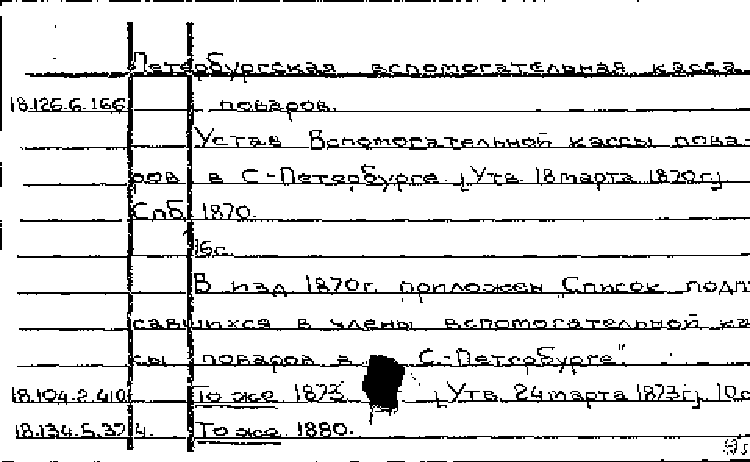 Петербургская вспомогательная касса
18.126.6.166 поваров.
Устав Вспомогательной кассы пова-
ров в С-Петербурге. [Утв. 18 марта 1870г.].
Спб, 1870.
16с.
В изд. 1870г. приложен "Список подпи
савшихся в члены вспомогательной ка
сы поваров в С.-Петербурге".
18.104.2.410 То же. 1873. [Утв. 24 марта 1873г.]. 10с
18.134.5.374. То же. 1880.